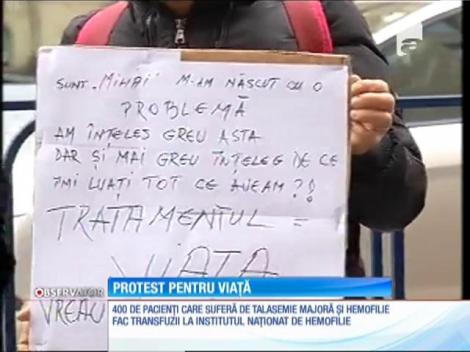 SUNT "MIHAI" M-AM NĂSCUT CU O
PROBLEMĂ
AM ÎNȚELES GREU ASTA
DAR ȘI MAI GREU ÎNȚELEG DE CE
ÎMI LUAȚI TOT CE AVEAM?!
TRATAMENTUL =
VIAȚA
VREAU
OBSERVATOR
PROTEST PENTRU VIAȚĂ
400 DE PACIENȚI CARE SUFERĂ DE TALASEMIE MAJORĂ ȘI HEMOFILIE
FAC TRANSFUZII LA INSTITUTUL NAȚIONAL DE HEMOFILIE